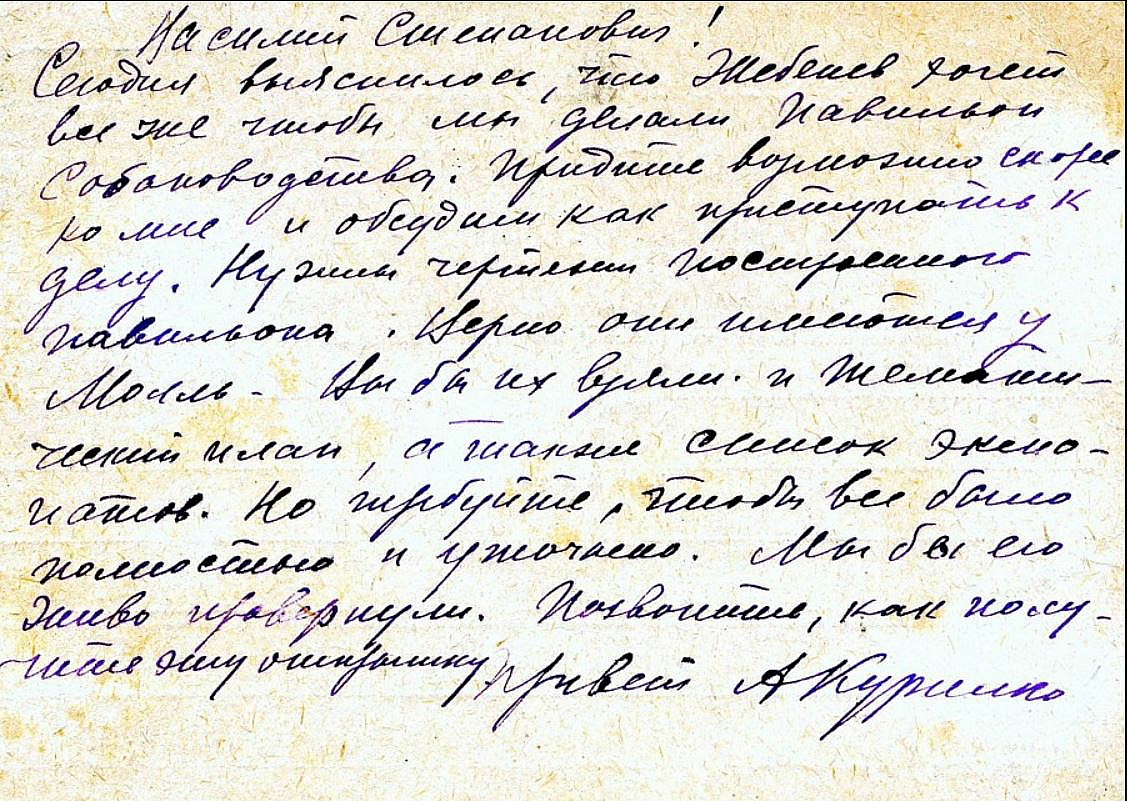 Василий Степанович!
Сегодня выяснилось, что Жебенев хочет
все же чтобы мы делали Павильон
Собаководства. Придите возможно скорее
ко мне и обсудим как приступать к
делу. Нужны чертежи построенного
павильона. Верно они имеются у
Мояль - Вы бы их взяли. и Темати-
ческий план, а также список экспо-
натов. Но требуйте, чтобы все было
полностью и уточнено. Мы бы его
живо провернули. Позвоните, как полу-
чите эту открытку, Привет АКурилко